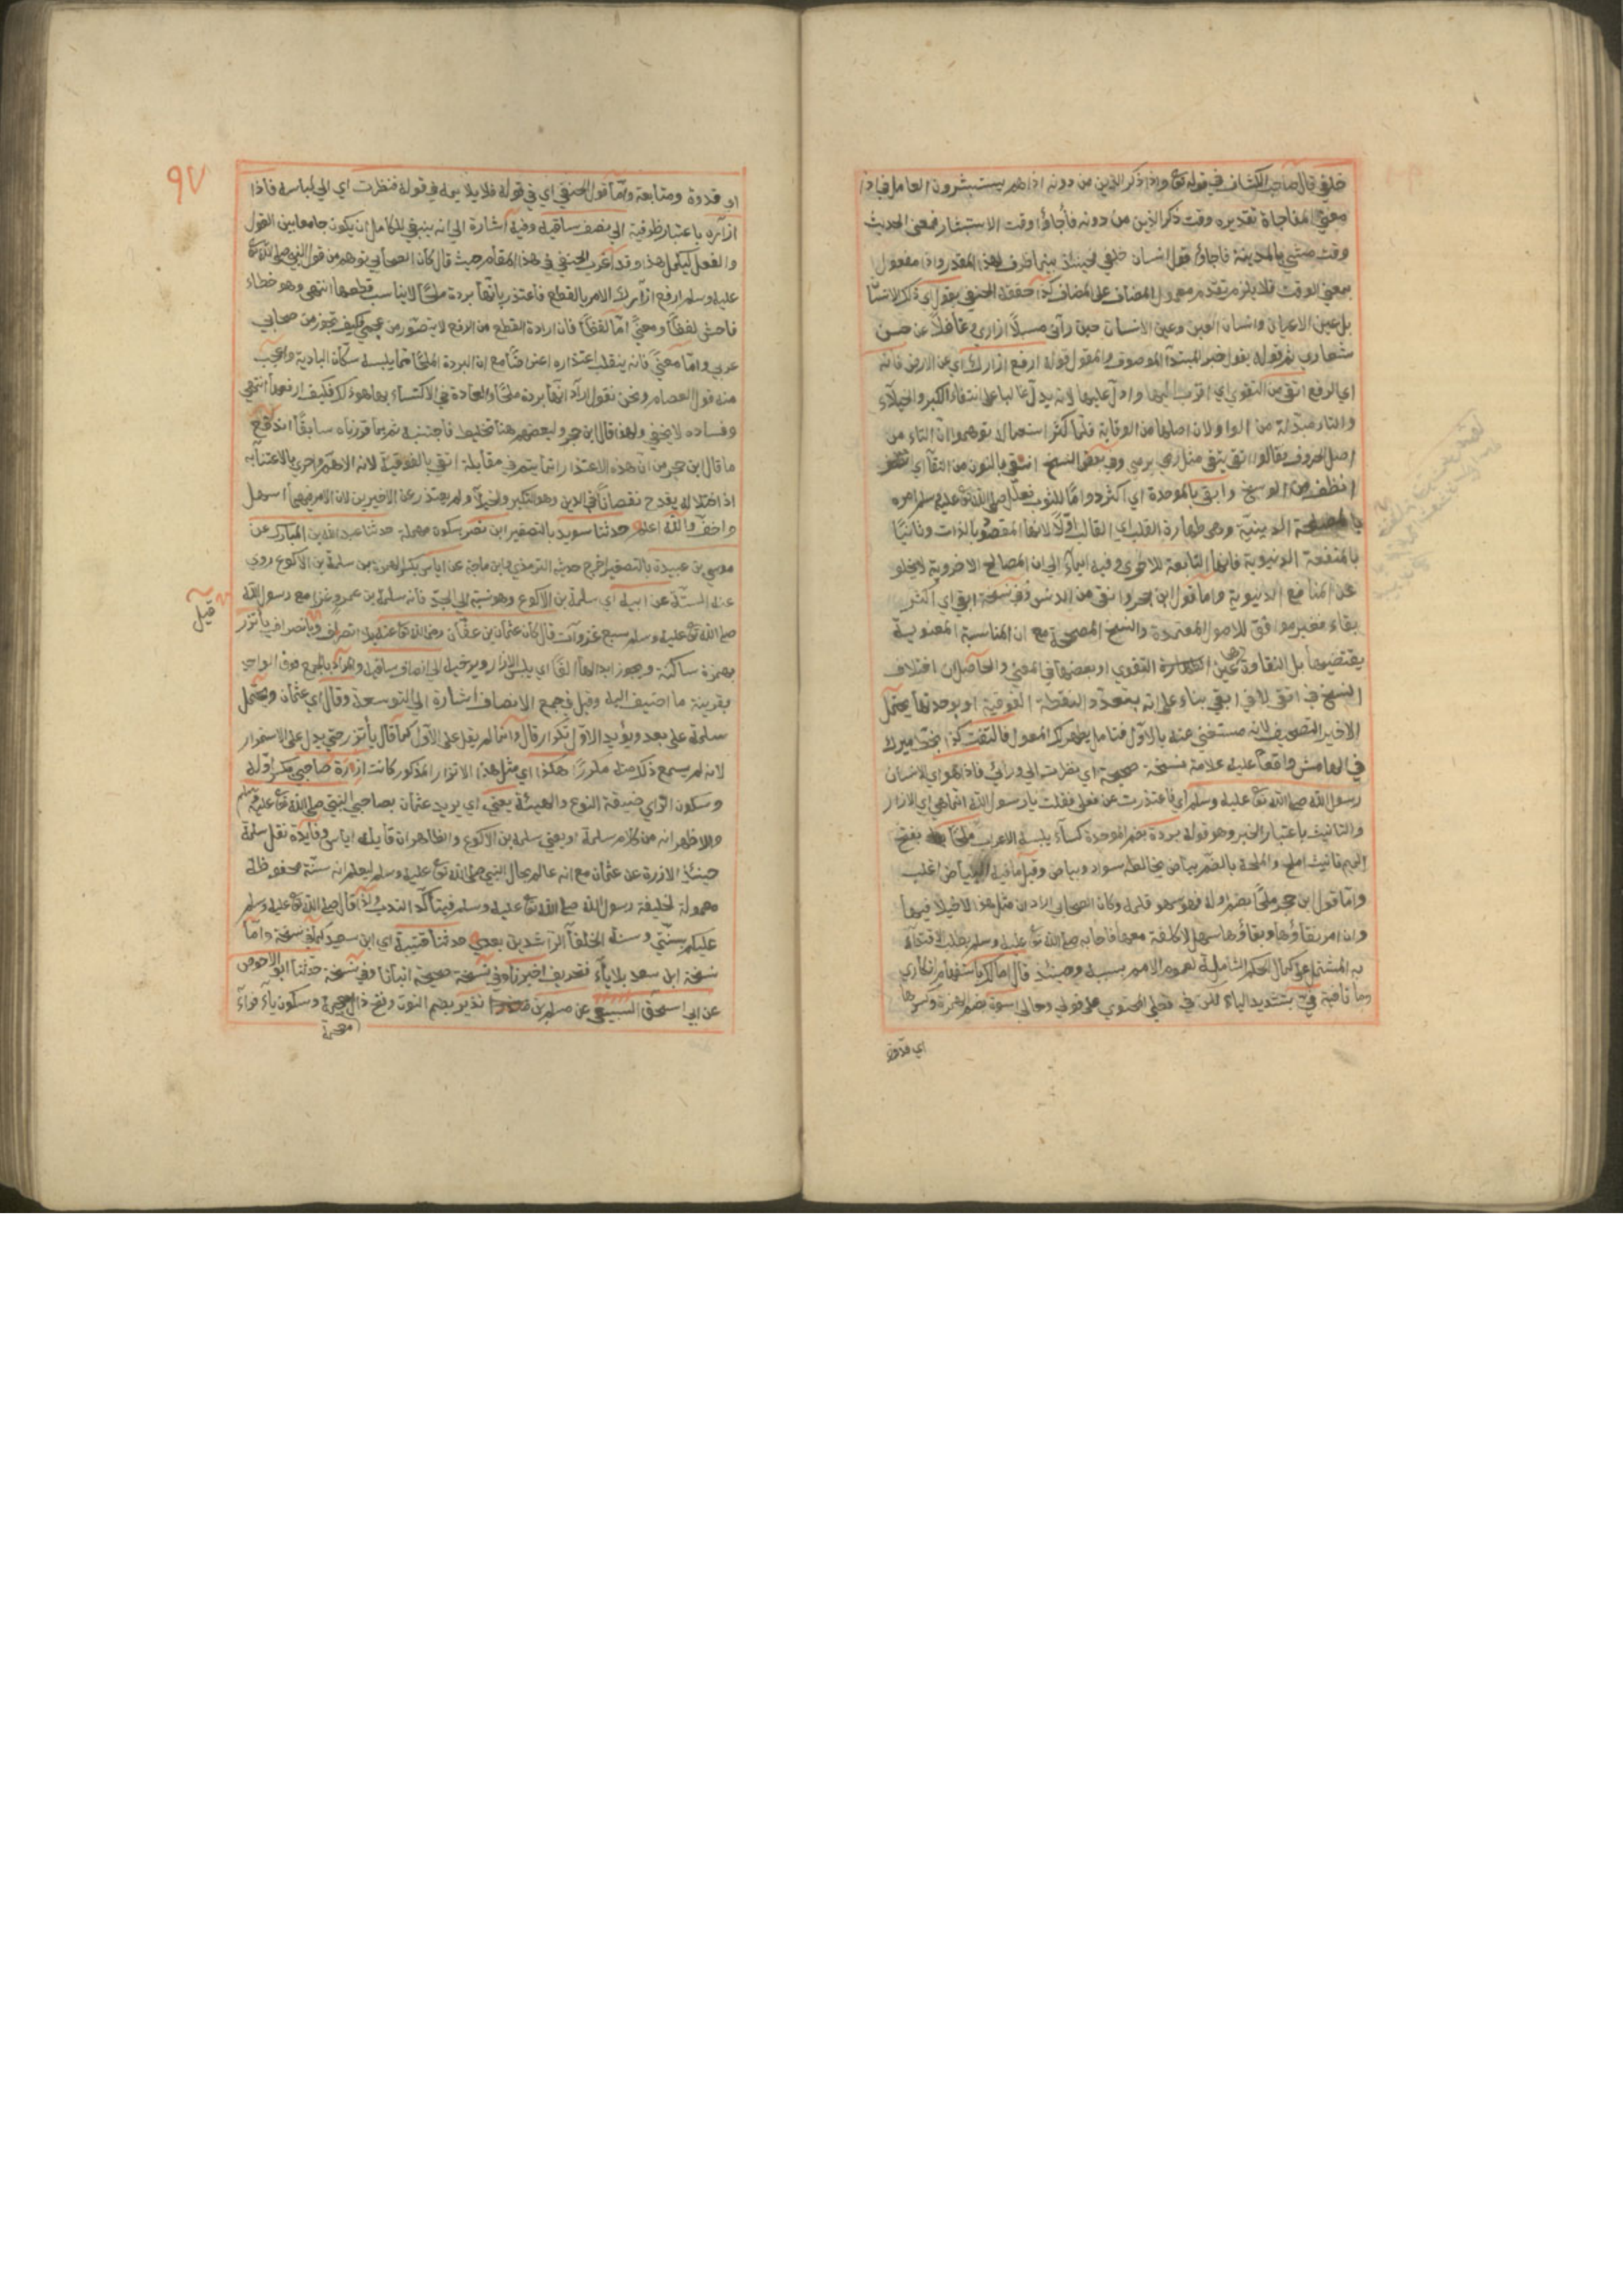 خلفي قال صاحب الكشاف في قوله تع واذا ذكر الذين من دونه اذا هم يستبشرون العامل في اذا
معنى المفاجاة تقديره وقت ذكر الذين من دونه فاجاؤا وقت الاستبشار فمعنى الحديث
وقت مشيي بالمدينة فاجاؤ قول انسان خلفي فحينئذ بينما ظرف لهذا المقدر واذا مفعول
بمعنى الوقت فلا يلزم تقدم معمول المضاف على المضاف كذا حققه الحنفي يقول اي ذلك الانسان
بل عين الاعيان وانسان العين وعين الانسان حين رآني مسبلا ازاري وغافلا عن حسن
شعاري ثم قوله يقول خبر المبتدأ الموصوف والمقول قوله ارفع ازارك اي عن الارض فانه
اي الرفع اتقى من التقوى اي اقرب اليها وادل عليها لانه يدل غالبا على انتفاء الكبر والخيلاء
والتاء مبدلة من الواو لان اصلها من الوقاية فلما كثر استعماله توهموا ان التاء من
اصل الحروف فقالوا تقى يتقي مثل رمى يرمي وفي بعض النسخ انقى بالنون من النقا اي
انظف من الوسخ وابقى بالموحدة اي اكثر دواما للثوب فعلل صلى الله تع عليه وسلم امره
بالمصلحة الدينية وهي طهارة القلب اي القالب اولا لانها المقصود بالذات وثانيا
بالمنفعة الدنيوية فانها التابعة للاخرى وفيه ايماء الى ان المصالح الاخروية لا يخلو
عن المنافع الدنيوية واما قول ابن حجر وانقى من الدنس وفي نسخة ابقى اي اكثر
بقاء فغير موافق للاصول المعتمدة والنسخ المصححة مع ان المناسبة المعنوية
يقتضيها بل النقاوة عين الطهارة التقوى او بعضها في المعنى والحاصل ان اختلاف
النسخ في اتقى لا في ابقى بناء على انه بتعدد النقطة الفوقية او بوحدتها يحتمل
الاخير التصحيف لانه مستغنى عنه بالاول فتامل يظهر لك المعول فالتفت كذا بخط ميرك
في الهامش واقعا عليه علامة نسخة صحيحة اي نظرت الى ورائي فاذا هو اي الانسان
رسول الله صلى الله تع عليه وسلم اي فاعتذرت عن فعلي فقلت يا رسول الله انما هي اي الازار
والتانيث باعتبار الخبر وهو قوله بردة بضم الموحدة كساء يلبسه الاعراب ملحا بفتح
الميم تانيث املح والملحة بالضم بياض يخالطه سواد وبياض وقيل ما فيه البياض اغلب
واما قول ابن حجر ملحا بضم اوله فهو سهو قلم وكان الصحابي اراد ان مثل هذا لا خيلا فيها
وان امر بقاؤها ونقاؤها سهل لا كلفة معها فاجابه صلى الله تع عليه وسلم بطلب الاقتداء
به المشتمل على كمال الحكم الشاملة لعموم الامم بسببه وحينئذ قال اما لك باستفهام انكاري
وما نافية في بتشديد الياء لكن في فعلي المحتوي على قولي وحالي اسوة بضم الهمزة وكسرها
اي قدوة
٩٧
اي قدوة ومتابعة واما قول الحنفي اي في قوله فلا يلايمه في قوله فنظرت اي الى لباسه فاذا
ازاره باعتبار ظرفيه الى نصف ساقيه وفيه اشارة الى انه ينبغي للكامل ان يكون جامعا بين القول
والفعل ليكمل هذا وقد اغرب الحنفي في هذا المقام حيث قال كان الصحابي توهم من قول النبي صلى الله تع
عليه وسلم ارفع ازارك الامر بالقطع فاعتذر بانها بردة ملحا لا يناسب قطعها انتهى وهو خطاء
فاحش لفظا ومعنى اما لفظا فان ارادة القطع من الرفع لا يتصور من عجمي فكيف تجوز من صحابي
عربي واما معنى فانه ينقلب اعتذاره اعتراضا مع ان البردة الملحا مما يلبسه سكان البادية واعجب
منه قول العصام ونحن نقول اراد انها بردة ملحا والعادة في الاكتساء بها هو ذلك فكيف ارفعها انتهى
وفساده لا يخفى ولهذا قال ابن حجر ولبعضهم هنا تخليط فاجتنبه ثم بما قررناه سابقا اندفع
ما قال ابن حجر من ان هذه الاعتذار انما يتم في مقابلة اتقى بالفوقية لانه الاهم واحرى بالاعتنا به
اذ اختلاله يقدح نقصانا في الدين وهو التكبر والخيلاء ولم يعتذر عن الاخيرين لان الامر فيهما اسهل
واخف والله اعلم حدثنا سويد بالتصغير ابن نصر بسكون مهملة حدثنا عبد الله بن المبارك عن
موسى بن عبيدة بالتصغير اخرج حديثه الترمذي وابن ماجة عن اياس بكسر الهمزة بن سلمة بن الاكوع روى
عنه الستة عن ابيه اي سلمة بن الاكوع وهو نسبة الى الجد فانه سلمة بن عمرو وغزا مع رسول الله
قيل
صلى الله تع عليه وسلم سبع غزوات قال كان عثمان بن عفان رضي الله تع عنه يأتزر
بهمزة ساكنة ويجوز ابدالها الفا اي يلبس الازار ويرخيه الى انصاف ساقيه والمراد بالجمع فوق الواحد
بقرينة ما اضيف اليه وقيل في جمع الانصاف اشارة الى التوسعة وقال اي عثمان ويحتمل
سلمة على بعد ويؤيد الاول تكرار قال وانما لم يقل على الاول كما قال يأتزر حتى يدل على الاستمرار
لانه لم يسمع ذلك منه مكررا هكذا اي مثل هذا الاتزار المذكور كانت ازرة صاحبي بكسر اوله
وسكون الزاي صيغة النوع والهيئة يعني اي يريد عثمان بصاحبي النبي صلى الله تع عليه وسلم
والاظهر انه من كلام سلمة او يعني سلمة بن الاكوع والظاهر ان قايله اياس وفايدة نقل سلمة
حينئذ الازرة عن عثمان مع انه عالم بحال النبي صلى الله تع عليه وسلم ليعلم انه سنة محفوظة
معمولة لخليفة رسول الله صلى الله تع عليه وسلم فيتأكد الندب ولذا قال صلى الله تع عليه وسلم
عليكم بسنتي وسنة الخلفا الراشدين بعدي حدثنا قتيبة اي ابن سعيد كما في نسخة واما
نسخة ابن سعد بلا ياء فتحريف اخبرنا وفي نسخة صحيحة انبانا وفي نسخة حدثنا ابو الاحوص
عن ابي اسحق السبيعي عن مسلم بن نذير بضم النون وفتح ذال معجمة وسكون ياء فراء
معجمة